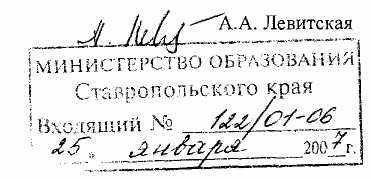 А.А. Левитская
МИНИСТЕРСТВО ОБРАЗОВАНИЯ
Ставропольского края
Входящий № 122/01-06
25 " января 2007 г.